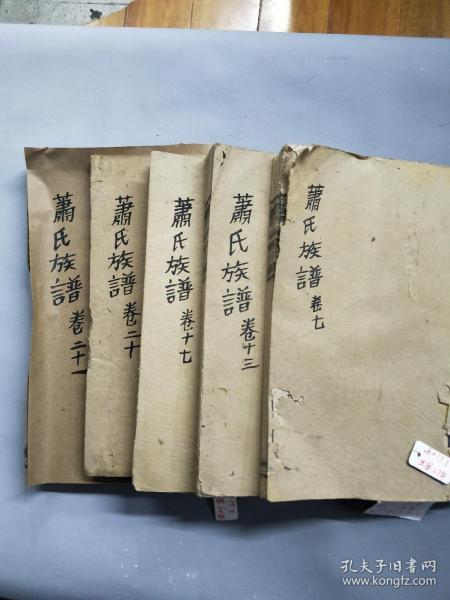 蕭氏族譜 卷七
蕭氏族譜 卷十三
蕭氏族譜 卷十七
蕭氏族譜 卷二十
蕭氏族譜 卷二十一
孔夫子旧书网
www.kongfz.com